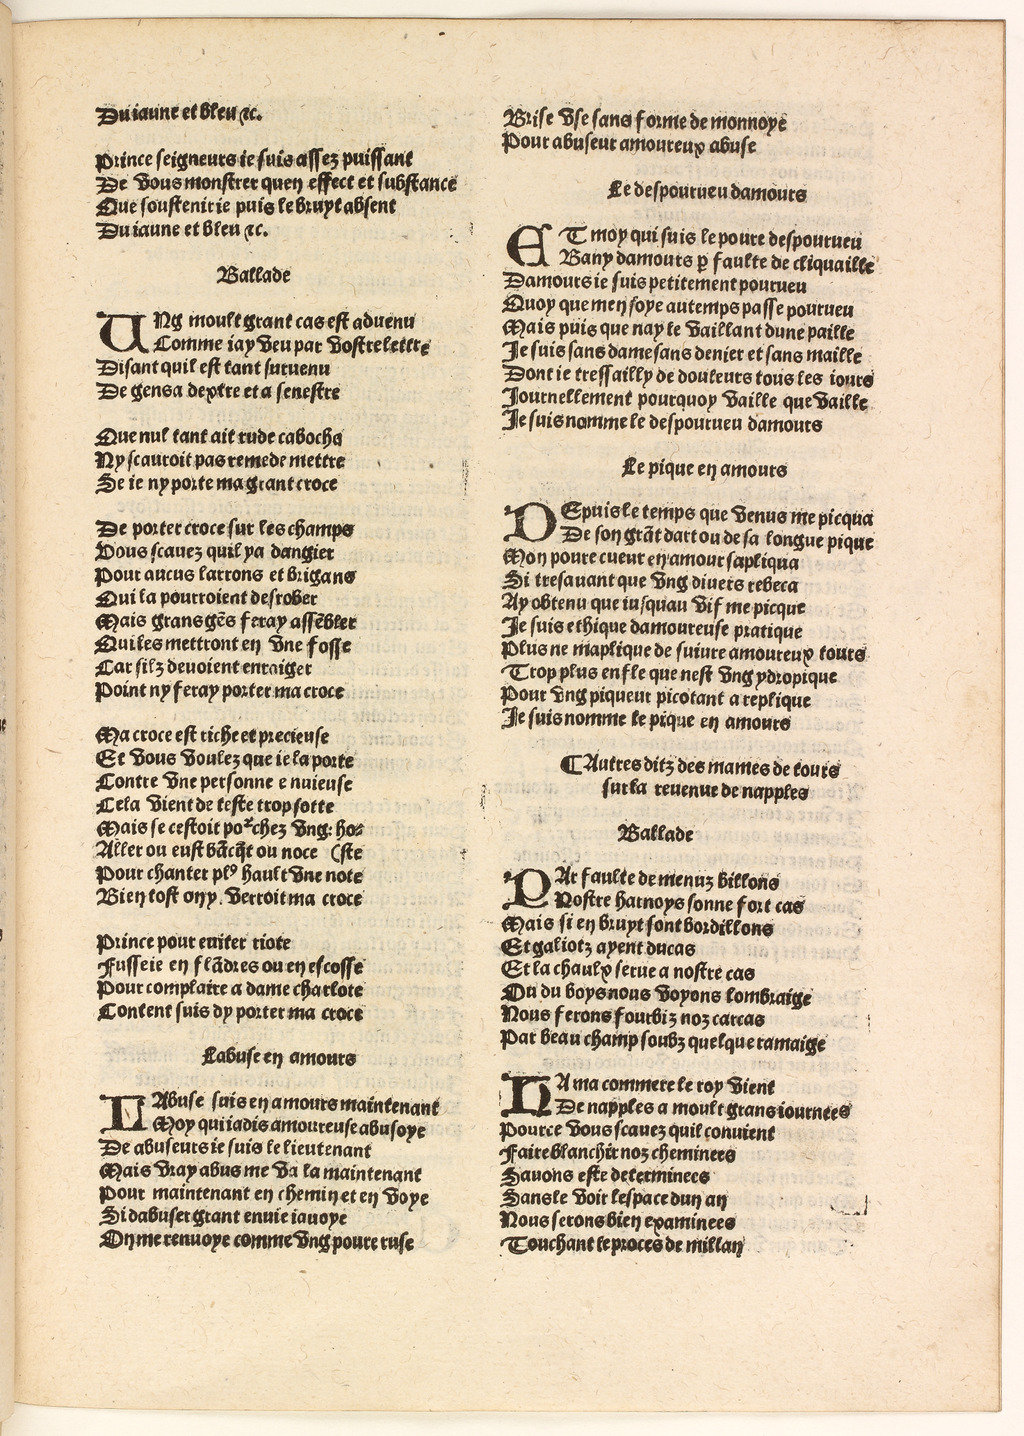 Du iaune et bleu ⁊c.

Prince seigneurs ie suis assez puissant
De vous monstrer quen effect et substance
Que soustenir ie puis le bruyt absent
Du iaune et bleu ⁊c.

Ballade

UNg moult grant cas est aduenu
Comme iay veu par vostre lettre
Disant quil est tant suruenu
De gens a dextre et a senestre

Que nul tant ait rude caboche
Ny scauroit pas remede mettre
Se ie ny porte ma grant croce

De porter croce sur les champs
Vous scauez quil ya dangier
Pour aucus larrons et brigans
Qui la pourroient desrober
Mais grans gẽs feray assẽbler
Qui les mettront en vne fosse
Car silz deuoient enraiger
Point ny feray porter ma croce

Ma croce est riche et precieuse
Et vous voulez que ie la porte
Contre vne personne enuieuse
Cela vient de teste trop sotte
Mais se cestoit poʳ chez vng: hos
Aller ou eust bãcq̃t ou noce (ste
Pour chanter plꝰ hault vne note
Bien tost on y. verroit ma croce

Prince pour euiter riote
Fusse ie en flãdres ou en escosse
Pour complaire a dame charlote
Content suis dy porter ma croce

Labuse en amours

LAbuse suis en amours maintenant
Moy qui iadis amoureuse abusoye
De abuseurs ie suis le lieutenant
Mais vray abus me va la maintenant
Pour maintenant en chemin et en voye
Si dabuser grant enuie iauoye
On me renuoye comme vng poure ruse
Brise vse sans forme de monnoye
Pour abuseur amoureux abuse

Le despourueu damours

ET moy qui suis le poure despourueu
Bany damours ꝑ faulte de cliquaille
Damours ie suis petitement pourueu
Quoy que men soye au temps passe pourueu
Mais puis que nay le vaillant dune paille
Je suis sans dame sans denier et sans maille
Dont ie tressailly de douleurs tous les iours
Journellement pourquoy vaille que vaille
Je suis nomme le despourueu damours

Le pique en amours

DEpuis le temps que venus me picqua
De son grãt dart ou de sa longue pique
Mon poure cueur en amour sapliqua
Si tresauant que vng diuers rebeca
Ay obtenu que iusquau vif me picque
Je suis ethique damoureuse pratique
Plus ne maplique de suiure amoureux tours
Trop plus enfle que nest vng ydropique
Pour vng piqueur picotant a replique
Je suis nomme le pique en amours

¶Autres ditz des mames de tours
sur la reuenue de napples

Ballade

PAr faulte de menuz billons
Nostre harnoys sonne fort cas
Mais si en bruyt sont bordillons
Et galiotz ayent ducas
Et la chaulx serue a nostre cas
Ou du boys nous voyons lombraige
Nous ferons fourbiz noz carcas
Par beau champ soubz quelque ramaige

HA ma commere le roy vient
De napples a moult grans iournees
Pource vous scauez quil conuient
Faire blanchir noz cheminees
Sauons este determinees
Sans le voir lespace dun an
Nous serons bien examinees
Touchant le proces de millan